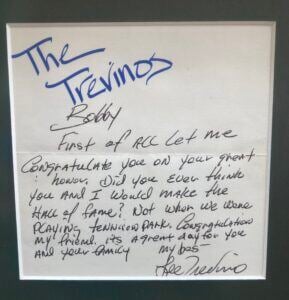 The
Trevinos
Bobby
First of ALL Let me
Congratulate you on your great
honor. Did you Ever think
you And I Would make the
HAll of fame? Not when we were
PLAYing Tennison PARK. Congratulations
my friend. its A great day for you
and your family my best
Lee Trevino